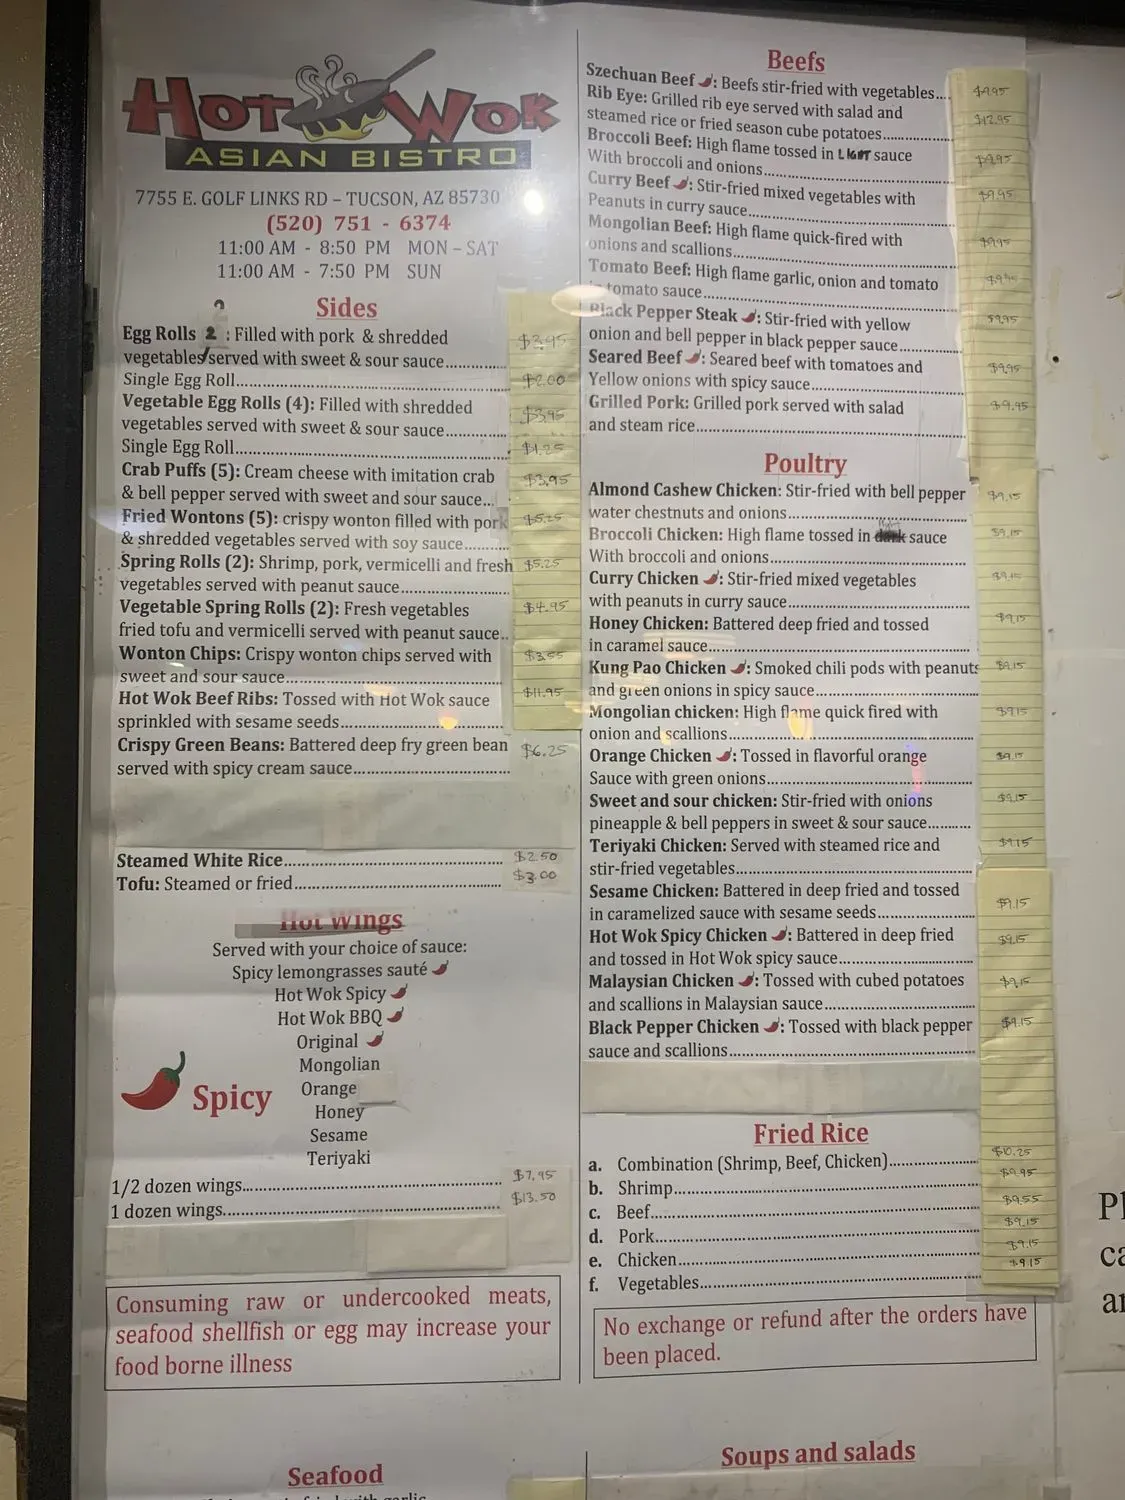 HOT WOK
ASIAN BISTRO
7755 E. GOLF LINKS RD – TUCSON, AZ 85730
(520) 751 - 6374
11:00 AM - 8:50 PM MON – SAT
11:00 AM - 7:50 PM SUN
Sides
2
Egg Rolls 2 : Filled with pork & shredded
vegetables/served with sweet & sour sauce............ $3.95
Single Egg Roll............ $2.00
Vegetable Egg Rolls (4): Filled with shredded
vegetables served with sweet & sour sauce............ $3.95
Single Egg Roll............ $1.25
Crab Puffs (5): Cream cheese with imitation crab
& bell pepper served with sweet and sour sauce... $3.95
Fried Wontons (5): crispy wonton filled with pork
& shredded vegetables served with soy sauce......... $5.25
Spring Rolls (2): Shrimp, pork, vermicelli and fresh
vegetables served with peanut sauce............ $5.25
Vegetable Spring Rolls (2): Fresh vegetables
fried tofu and vermicelli served with peanut sauce.. $4.95
Wonton Chips: Crispy wonton chips served with
sweet and sour sauce............ $3.55
Hot Wok Beef Ribs: Tossed with Hot Wok sauce
sprinkled with sesame seeds............ $11.95
Crispy Green Beans: Battered deep fry green bean
served with spicy cream sauce............ $6.25
Steamed White Rice............ $2.50
Tofu: Steamed or fried............ $3.00
Hot Wings
Served with your choice of sauce:
Spicy lemongrasses sauté
Hot Wok Spicy
Hot Wok BBQ
Original
Mongolian
Orange
Honey
Sesame
Teriyaki
Spicy
1/2 dozen wings............ $7.95
1 dozen wings............ $13.50
Consuming raw or undercooked meats,
seafood shellfish or egg may increase your
food borne illness
Seafood
Beefs
Szechuan Beef : Beefs stir-fried with vegetables.... $9.95
Rib Eye: Grilled rib eye served with salad and
steamed rice or fried season cube potatoes............ $12.95
Broccoli Beef: High flame tossed in LIGHT sauce
With broccoli and onions............ $9.95
Curry Beef : Stir-fried mixed vegetables with
Peanuts in curry sauce............ $9.95
Mongolian Beef: High flame quick-fired with
onions and scallions............ $9.95
Tomato Beef: High flame garlic, onion and tomato
in tomato sauce............ $9.95
Black Pepper Steak : Stir-fried with yellow
onion and bell pepper in black pepper sauce............ $9.95
Seared Beef : Seared beef with tomatoes and
Yellow onions with spicy sauce............ $9.95
Grilled Pork: Grilled pork served with salad
and steam rice............ $9.95
Poultry
Almond Cashew Chicken: Stir-fried with bell pepper
water chestnuts and onions............ $9.15
Broccoli Chicken: High flame tossed in sauce
With broccoli and onions............ $9.15
Curry Chicken : Stir-fried mixed vegetables
with peanuts in curry sauce............ $9.15
Honey Chicken: Battered deep fried and tossed
in caramel sauce............ $9.15
Kung Pao Chicken : Smoked chili pods with peanuts
and green onions in spicy sauce............ $9.15
Mongolian chicken: High flame quick fired with
onion and scallions............ $9.15
Orange Chicken : Tossed in flavorful orange
Sauce with green onions............ $9.15
Sweet and sour chicken: Stir-fried with onions
pineapple & bell peppers in sweet & sour sauce......... $9.15
Teriyaki Chicken: Served with steamed rice and
stir-fried vegetables............ $9.15
Sesame Chicken: Battered in deep fried and tossed
in caramelized sauce with sesame seeds............ $9.15
Hot Wok Spicy Chicken : Battered in deep fried
and tossed in Hot Wok spicy sauce............ $9.15
Malaysian Chicken : Tossed with cubed potatoes
and scallions in Malaysian sauce............ $9.15
Black Pepper Chicken : Tossed with black pepper
sauce and scallions............ $9.15
Fried Rice
a. Combination (Shrimp, Beef, Chicken)............ $10.25
b. Shrimp............ $9.95
c. Beef............ $9.55
d. Pork............ $9.15
e. Chicken............ $9.15
f. Vegetables............ $9.15
No exchange or refund after the orders have
been placed.
Soups and salads